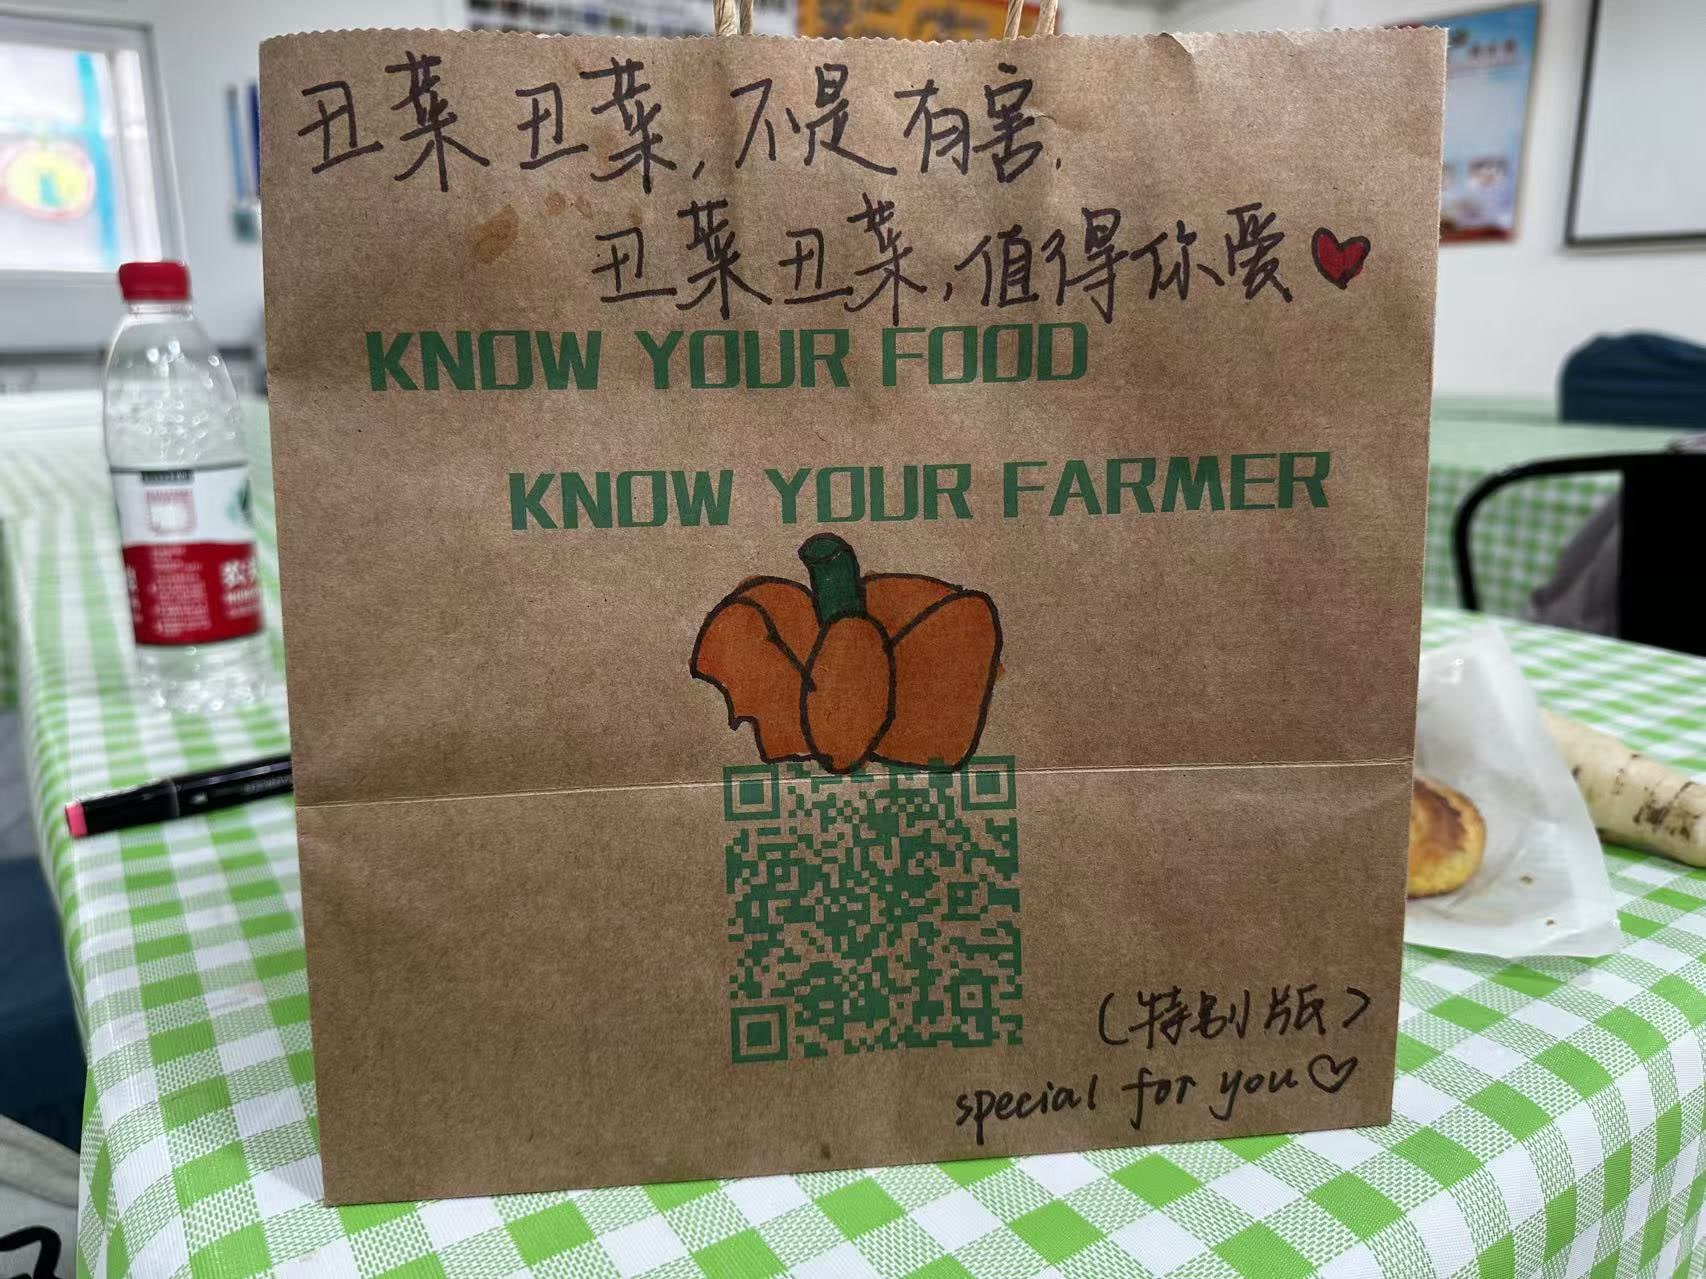 丑菜丑菜,不是有害.
丑菜丑菜,值得你爱
KNOW YOUR FOOD
KNOW YOUR FARMER
(特别版)
special for you